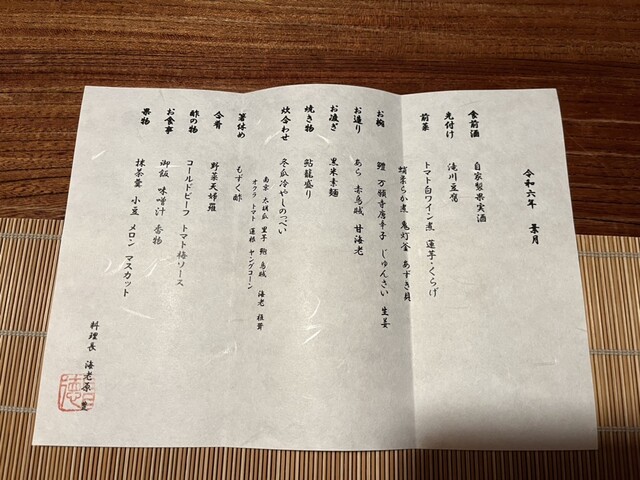 令和六年 葉月
食前酒 自家製果実酒
先付け 滝川豆腐
前菜 トマト白ワイン煮 蓮芋・くらげ
蛸柔らか煮 鬼灯釜 あずき貝
お椀 鱧 万願寺唐辛子 じゅんさい 生姜
お造り あら 赤烏賊 甘海老
お凌ぎ 黒米素麺
焼き物 鮎籠盛り
炊合わせ 冬瓜冷やしのっぺい
南京 木胡瓜 里芋 鮑 烏賊 海老 椎茸
オクラ トマト 蓮根 ヤングコーン
箸休め もずく酢
合肴 野菜天婦羅
酢の物 コールドビーフ トマト梅ソース
お食事 御飯 味噌汁 香物
果物 抹茶羹 小豆 メロン マスカット
料理長 海老原 豊